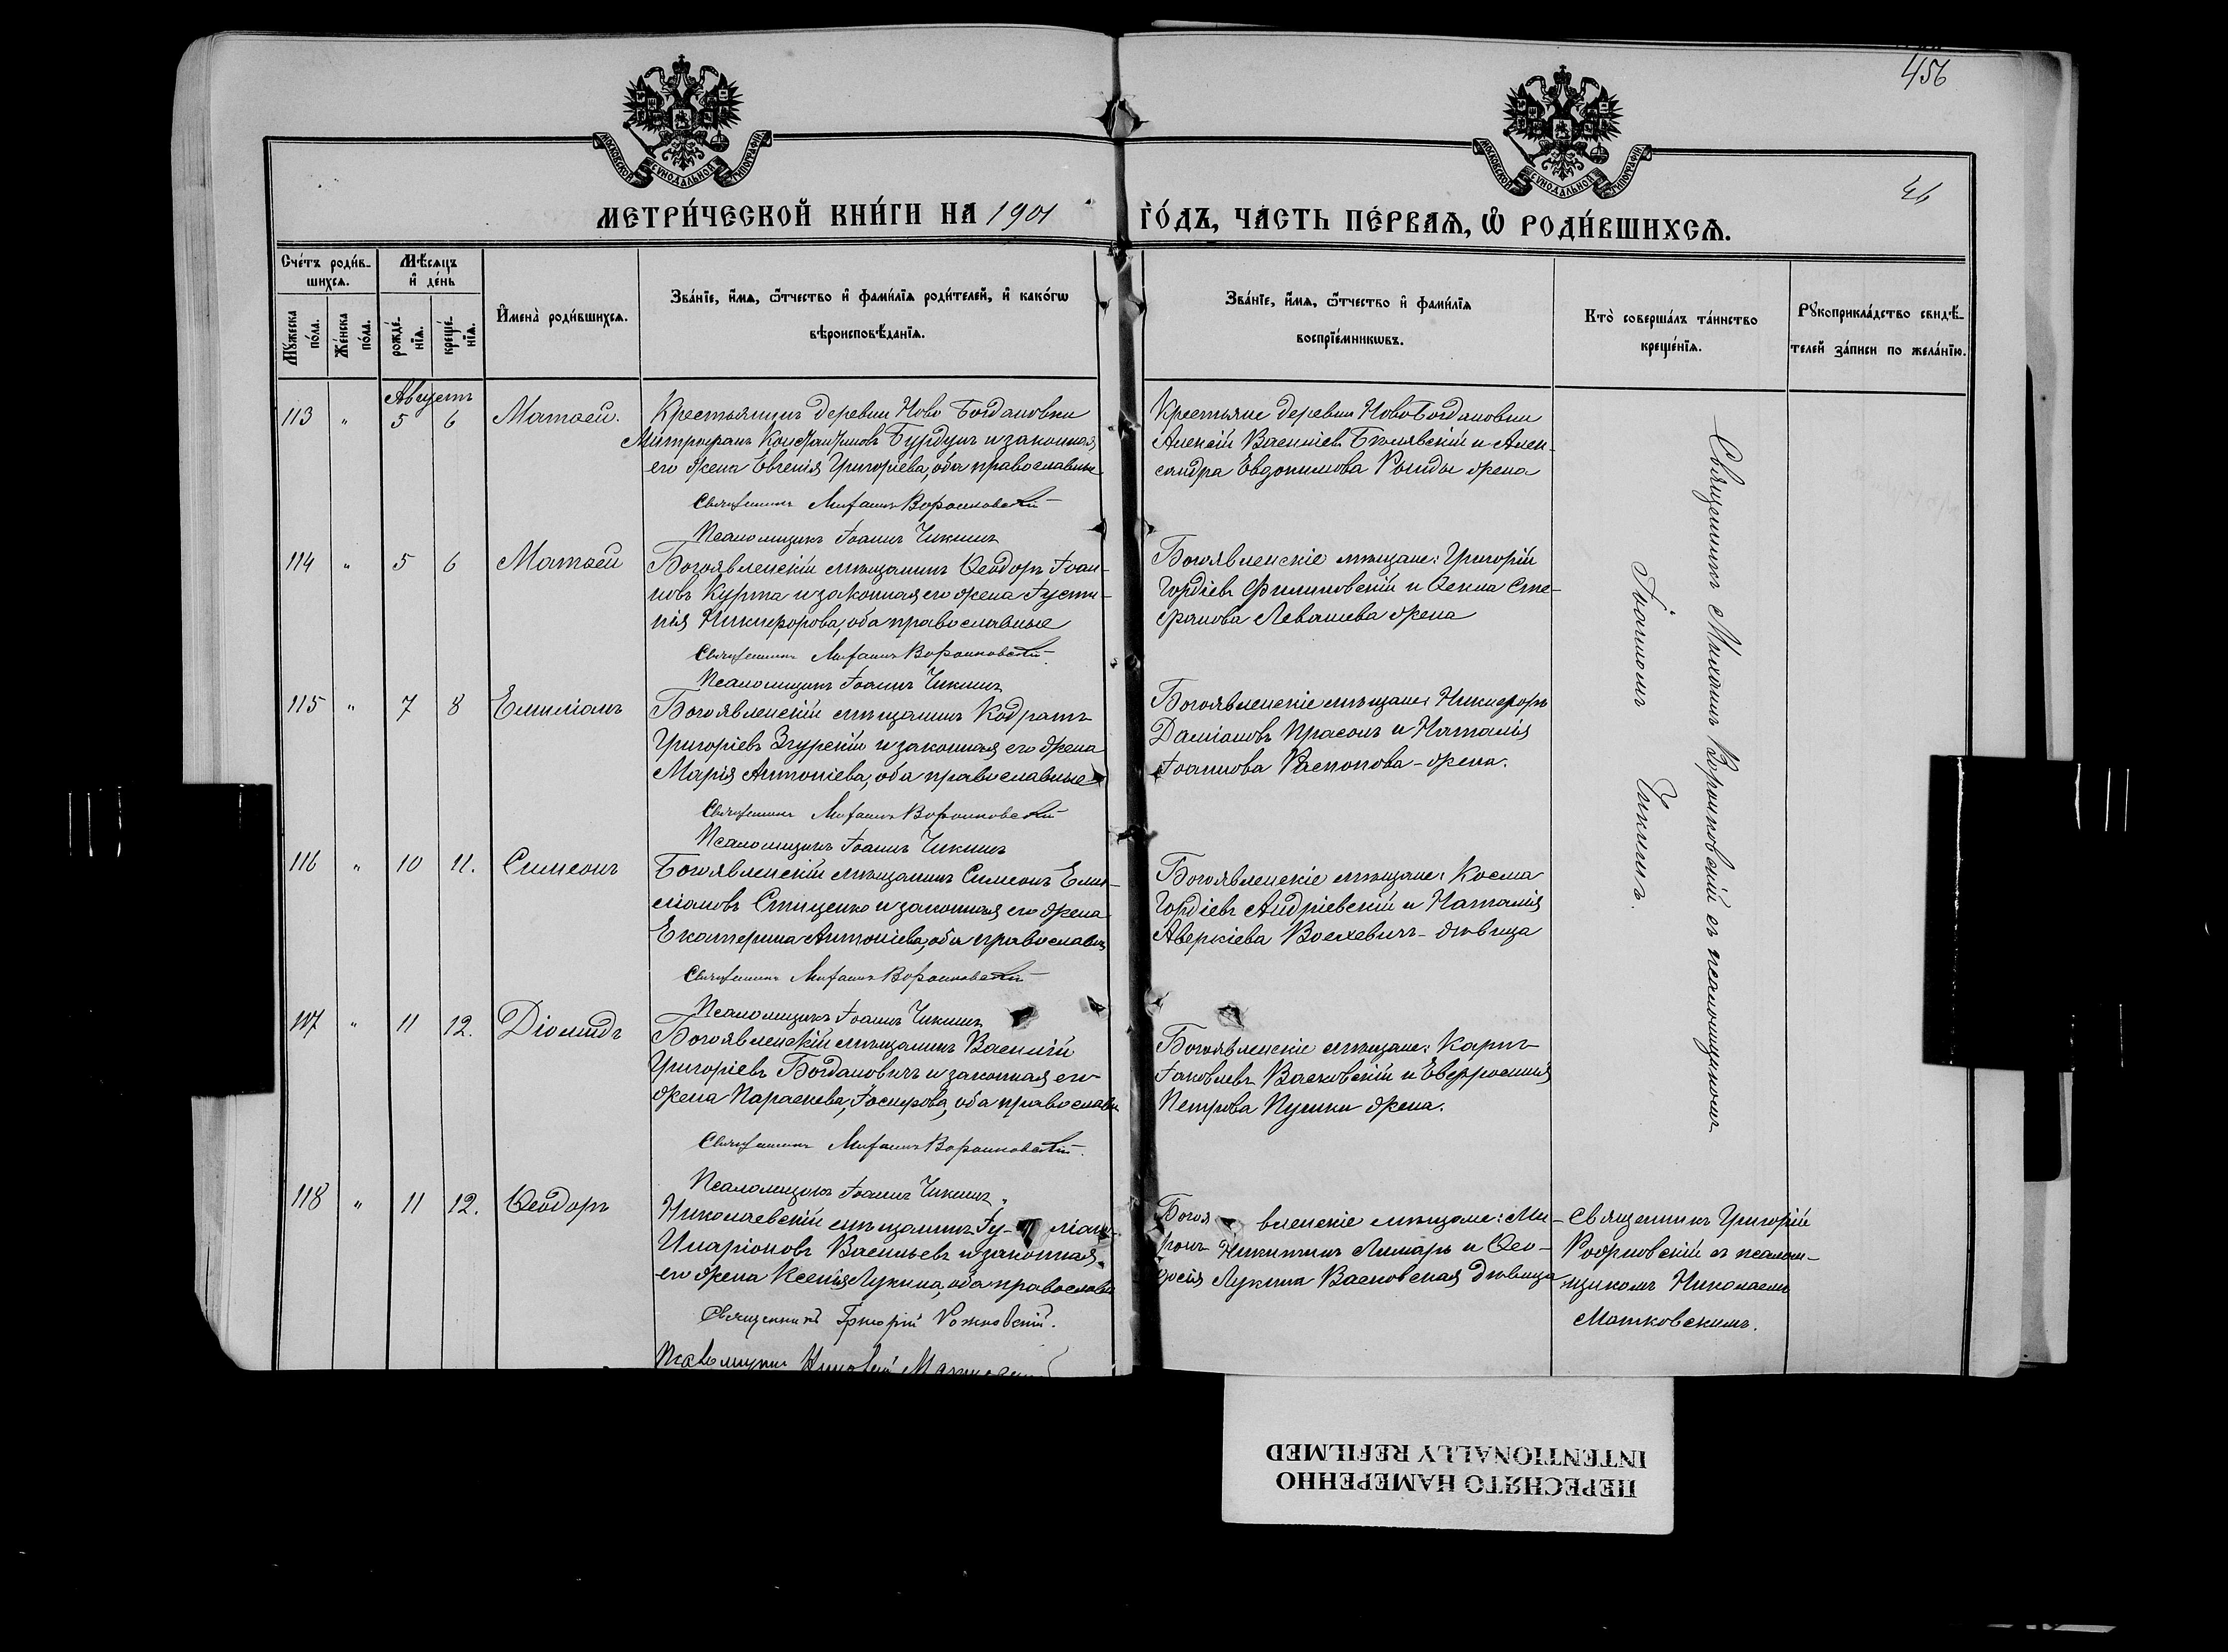 456
46
МОСКОВСКОЙ СУНОДАЛЬНОЙ ТИПОГРАФІИ
МОСКОВСКОЙ СУНОДАЛЬНОЙ ТИПОГРАФІИ
МЕТРИ́ЧЕСКОЙ КНИ́ГИ НА 1901 ГО́ДЪ, ЧА́СТЬ ПЕ́РВАѦ, Ѡ РОДИ́ВШИХСѦ.
Сче́тъ роди́в-
шихсѧ.
Мꙋ́жеска по́ла.
Же́нска по́ла.
Мѣ́сѧцъ
и҆ де́нь
рожде́-
нїѧ.
креще́-
нїѧ.
И҆мена̀ роди́вшихсѧ.
Зва́нїе, и҆́мѧ, ѻ҆́тчество и҆ фами́лїѧ роди́телей, и҆ како́гѡ
вѣроисповѣ́данїѧ.
Зва́нїе, и҆́мѧ, ѻ҆́тчество и҆ фами́лїѧ
воспрїе́мникѡвъ.
Кто̀ соверша́лъ та́инство
креще́нїѧ.
Рꙋкоприкла́дство свидѣ́-
телей за́писи по жела́нїю.
Августъ
113 " 5 6 Матѳей.
Крестьянинъ деревни Ново Богдановки
Митрофанъ Константиновъ Бурдунъ и законная
его жена Евгенія Григоріева, оба православные
Священникъ МихаилъВорошковскій
Псаломщикъ Іоаннъ Чикинъ
Крестьяне деревни НовоБогдановки
Алексій Василіевъ Бѣлявскій и Алек-
сандра Евдокимова жена
114 " 5 6 Матѳей
Богоявленскій мѣщанинъ Ѳеодоръ Іоан-
новъ Курта и законная его жена Іусти-
нія Никифорова, оба православные
Священникъ Михаилъ Воронковскій
Псаломщикъ Іоаннъ Чикинъ
Богоявленскіе мѣщане: Григорій
Гордіевъ Филиповскій и Ѳекла Сте-
фанова Левашева жена
115 " 7 8 Емиліанъ
Богоявленскій мѣщанинъ Кодратъ
Григоріевъ Згурскій и законная его жена
Марія Антоніева, оба православные
Священникъ Михаилъ Воронковскій
Псаломщикъ Іоаннъ Чикинъ
Богоявленскіе мѣщане: Никифоръ
Даміановъ Прасолъ и Наталія
Іоаннова Распопова - жена.
116 " 10 11. Симеонъ
Богоявленскій мѣщанинъ Симеонъ Еми-
ліановъ Стиценко и законная его жена
Екатерина Антоніева, оба православн
Священникъ Михаилъ Воронковскій
Псаломщикъ Іоаннъ Чикинъ
Богоявленскіе мѣщане: Косма
Гордіевъ Андріевскій и Наталія
Аверкіева - дѣвица
117 " 11 12. Діомидъ
Богоявленскій мѣщанинъ Василій
Григоріевъ Богдановичъ и законная его
жена Параскева Іосифова, оба православн
Священникъ Михаилъ Воронковскій.
Псаломщикъ Іоаннъ Чикинъ
Богоявленскіе мѣщане: Карпъ
Іаковлевъ Васковскій и Евфросинія
Петрова Пушки жена.
118 " 11 12. Ѳеодоръ
Николаевскій мѣщанинъ Іу-ліанъ
Иларіоновъ Васильевъ и законная
его жена Ксенія Лукина, оба православн
Священникъ Григорій Рожковскій.
Псаломщикъ Николай Матковскій
Богоявленскіе мѣщане: Ми-
ронъ Никитинъ Лимарь и Ѳео-
досія Лукина Васковская дѣвица
Священникъ Михаилъ Воронковскій съ псаломщикомъ
Іоанномъ Чикинъ.
Священникъ Григорій
Рожковскій съ псалом-
щикомъ Николаемъ
Матковскимъ.
ПЕРЕСНЯТО НАМЕРЕННО
INTENTIONALLY REFILMED